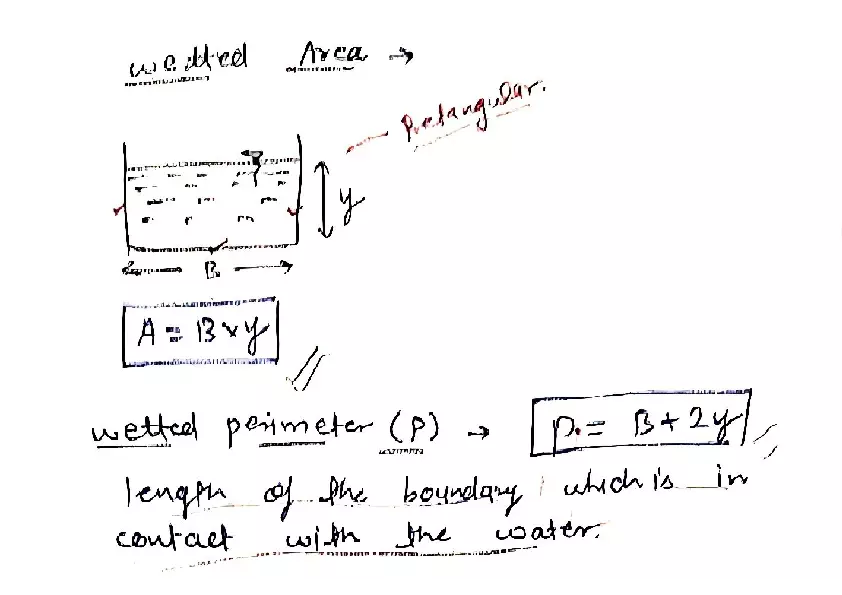 wetted Area →
Rectangular.
y
B
A = B × y
wetted perimeter (P) → P = B + 2y
length of the boundary which is in
contact with the water.